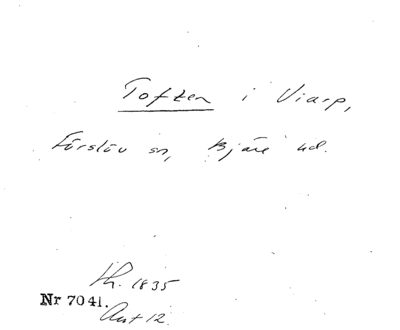 Toften i Viarp,
Förslöv sn, Bjäre hd.
h. 1835
Nr 7041.
Avt 12.